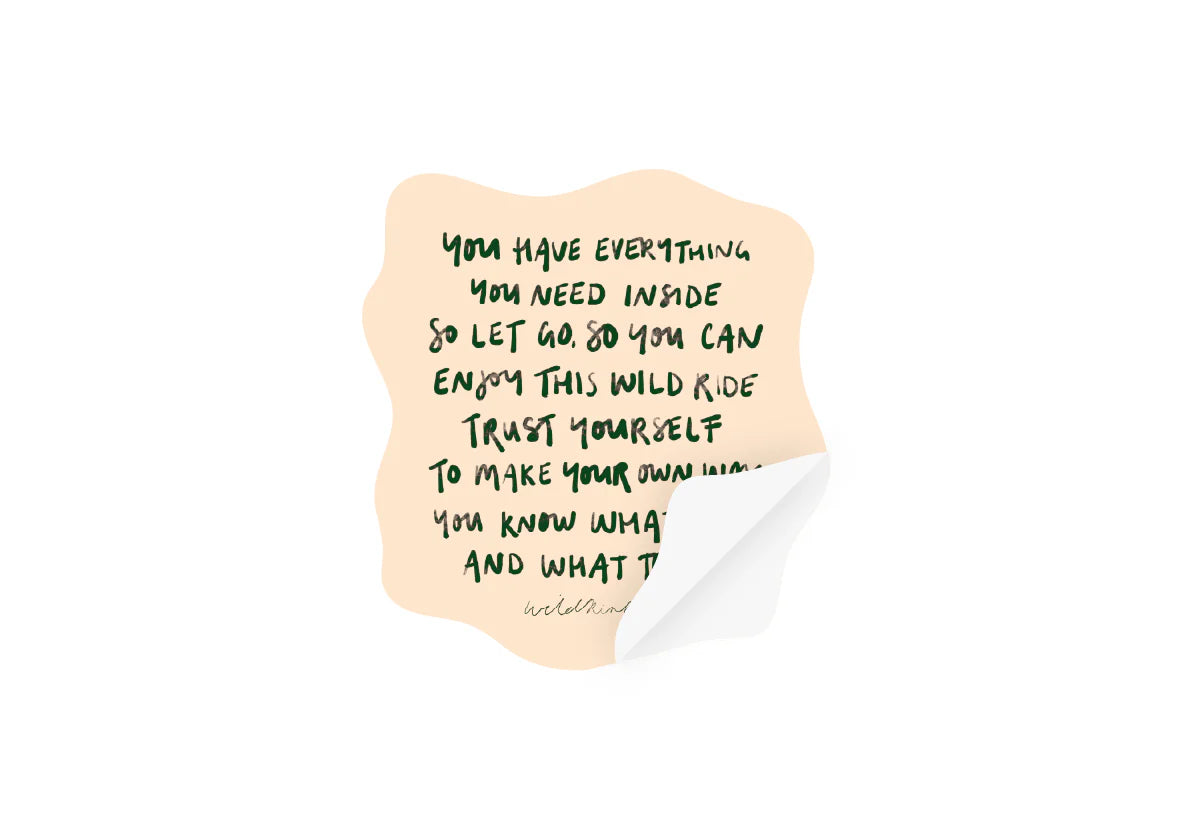 YOU HAVE EVERYTHING
YOU NEED INSIDE
SO LET GO, SO YOU CAN
ENJOY THIS WILD RIDE
TRUST YOURSELF
TO MAKE YOUR OWN WAY
YOU KNOW WHAT
AND WHAT